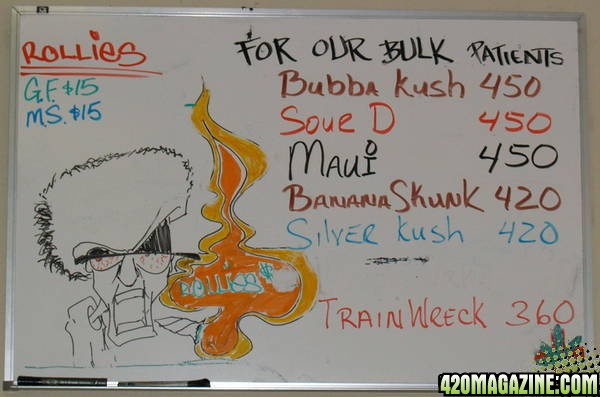 ROLLIES
G.F. $15
M.S. $15
FOR OUR BULK PATIENTS
Bubba Kush 450
Sour D 450
Maui 450
Banana Skunk 420
Silver Kush 420
TrainWreck 360
ROLLIES
420MAGAZINE.COM